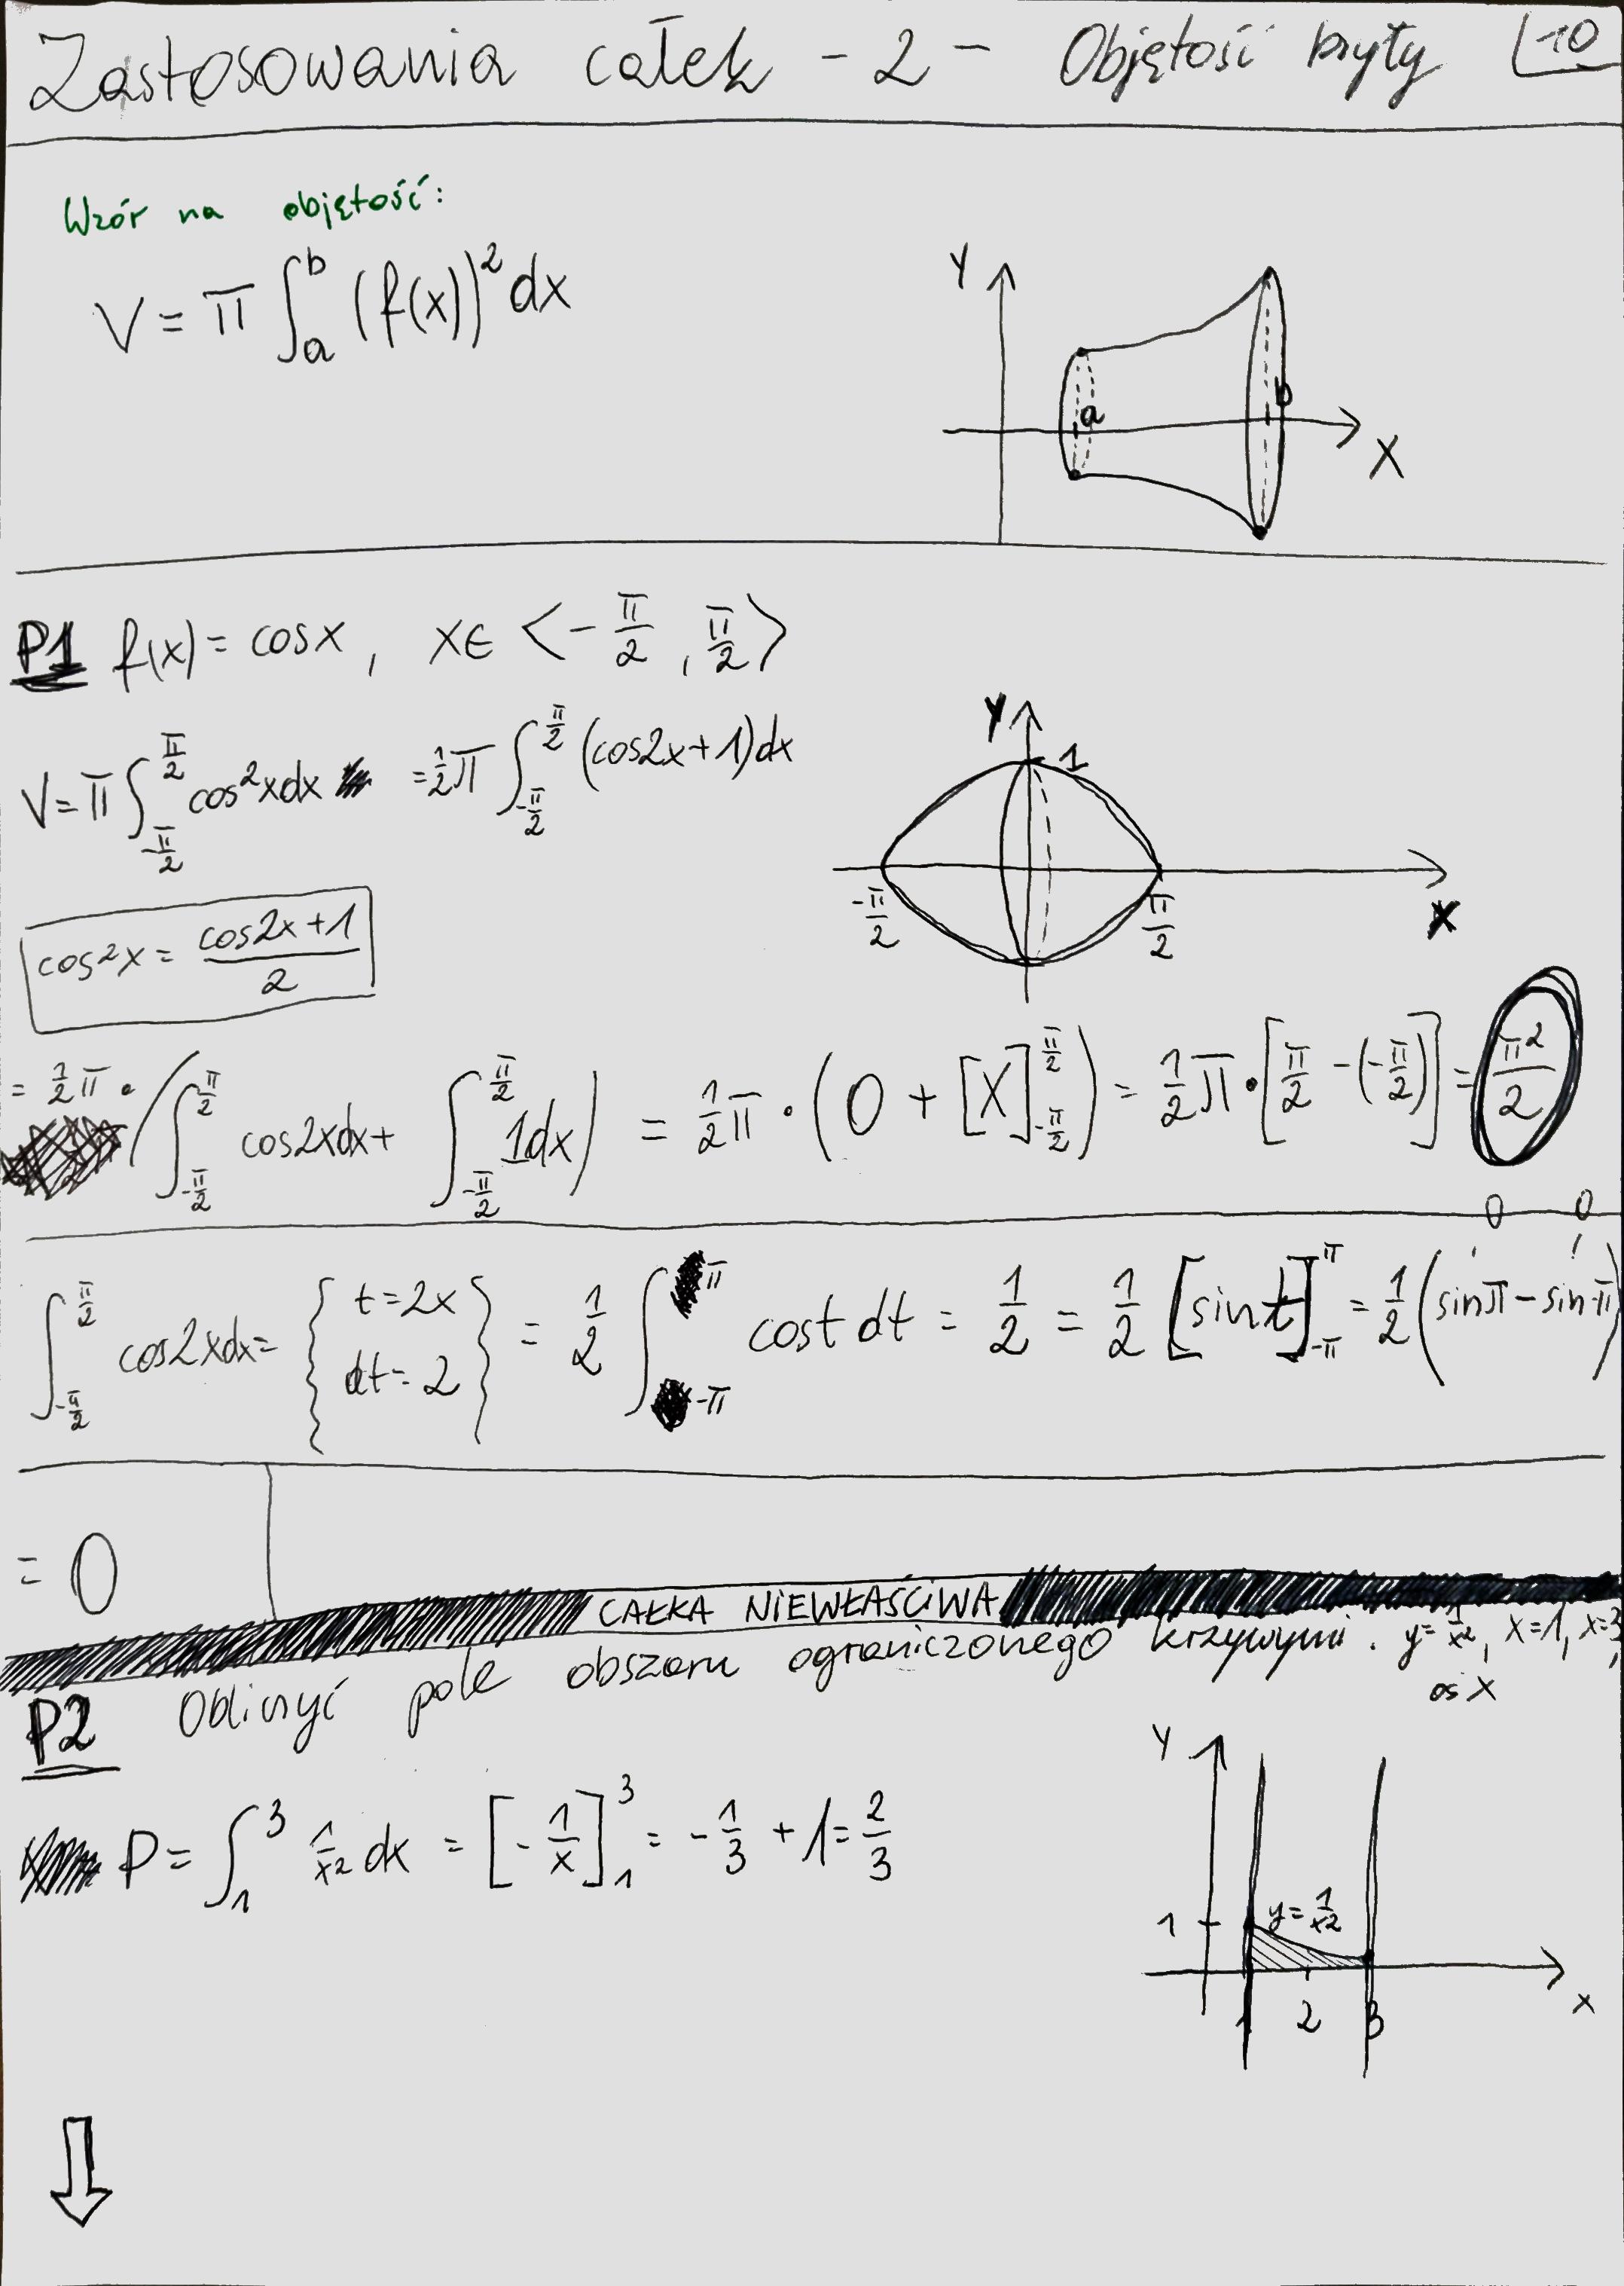 Zastosowania całek - 2 - Objętość bryły 10
Wzór na objętość:
V = π ∫_a^b (f(x))² dx
Y
a
b
X
P1 f(x) = cosx, x∈ <-π/2, π/2>
V = π ∫_{-π/2}^{π/2} cos²xdx = 1/2 π ∫_{-π/2}^{π/2} (cos2x+1)dx
Y
1
-π/2
π/2
X
cos²x = (cos2x+1)/2
= 1/2 π · (∫_{-π/2}^{π/2} cos2xdx + ∫_{-π/2}^{π/2} 1dx) = 1/2 π · (0 + [X]_{-π/2}^{π/2}) = 1/2 π · [π/2 - (-π/2)] = π²/2
0 0
∫_{-π/2}^{π/2} cos2xdx = { t=2x
dt=2 } = 1/2 ∫_{-π}^{π} cost dt = 1/2 = 1/2 [sint]_{-π}^{π} = 1/2 (sinπ - sin-π)
= 0
CAŁKA NIEWŁAŚCIWA
P2 Obliczyć pole obszaru ograniczonego krzywymi. y=1/x², x=1, x=3,
oś X
P = ∫_1^3 1/x² dx = [-1/x]_1^3 = -1/3 + 1 = 2/3
Y
1
y=1/x²
1 2 3
x